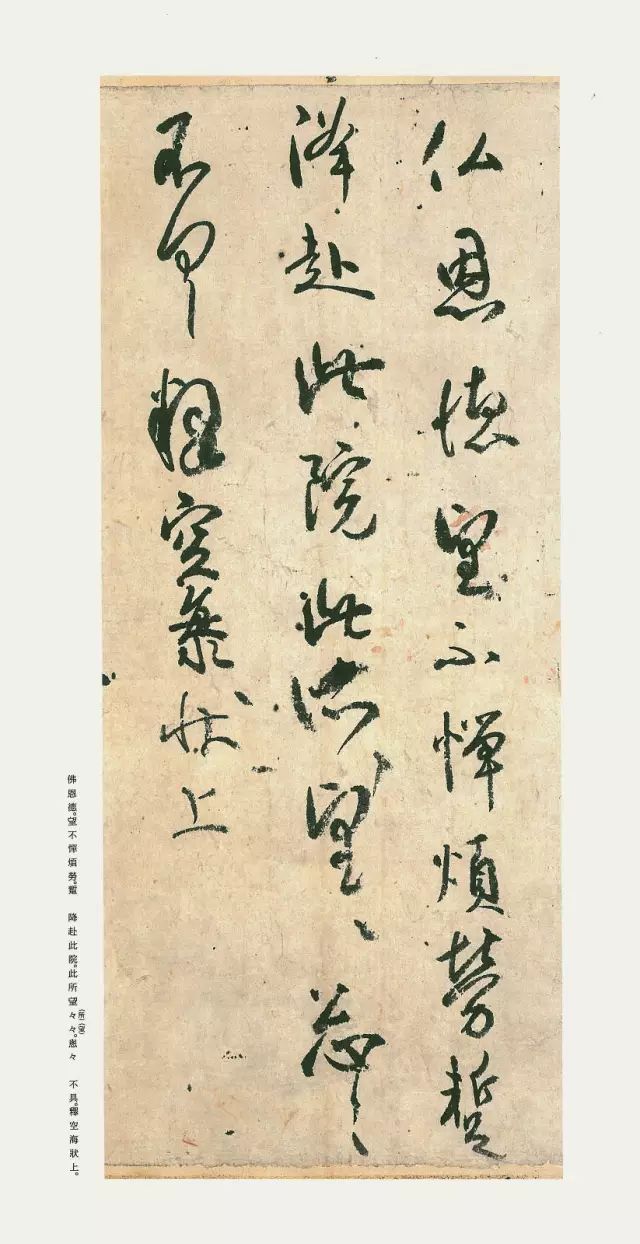 仏恩徳望不憚煩勞蹔
降赴此院此所望〻忩〻
不具釋空海状上
佛恩德。望不憚煩勞。蹔　降赴此院。此所望々々。忩々　不具。釋空海狀上。
(所)(望)